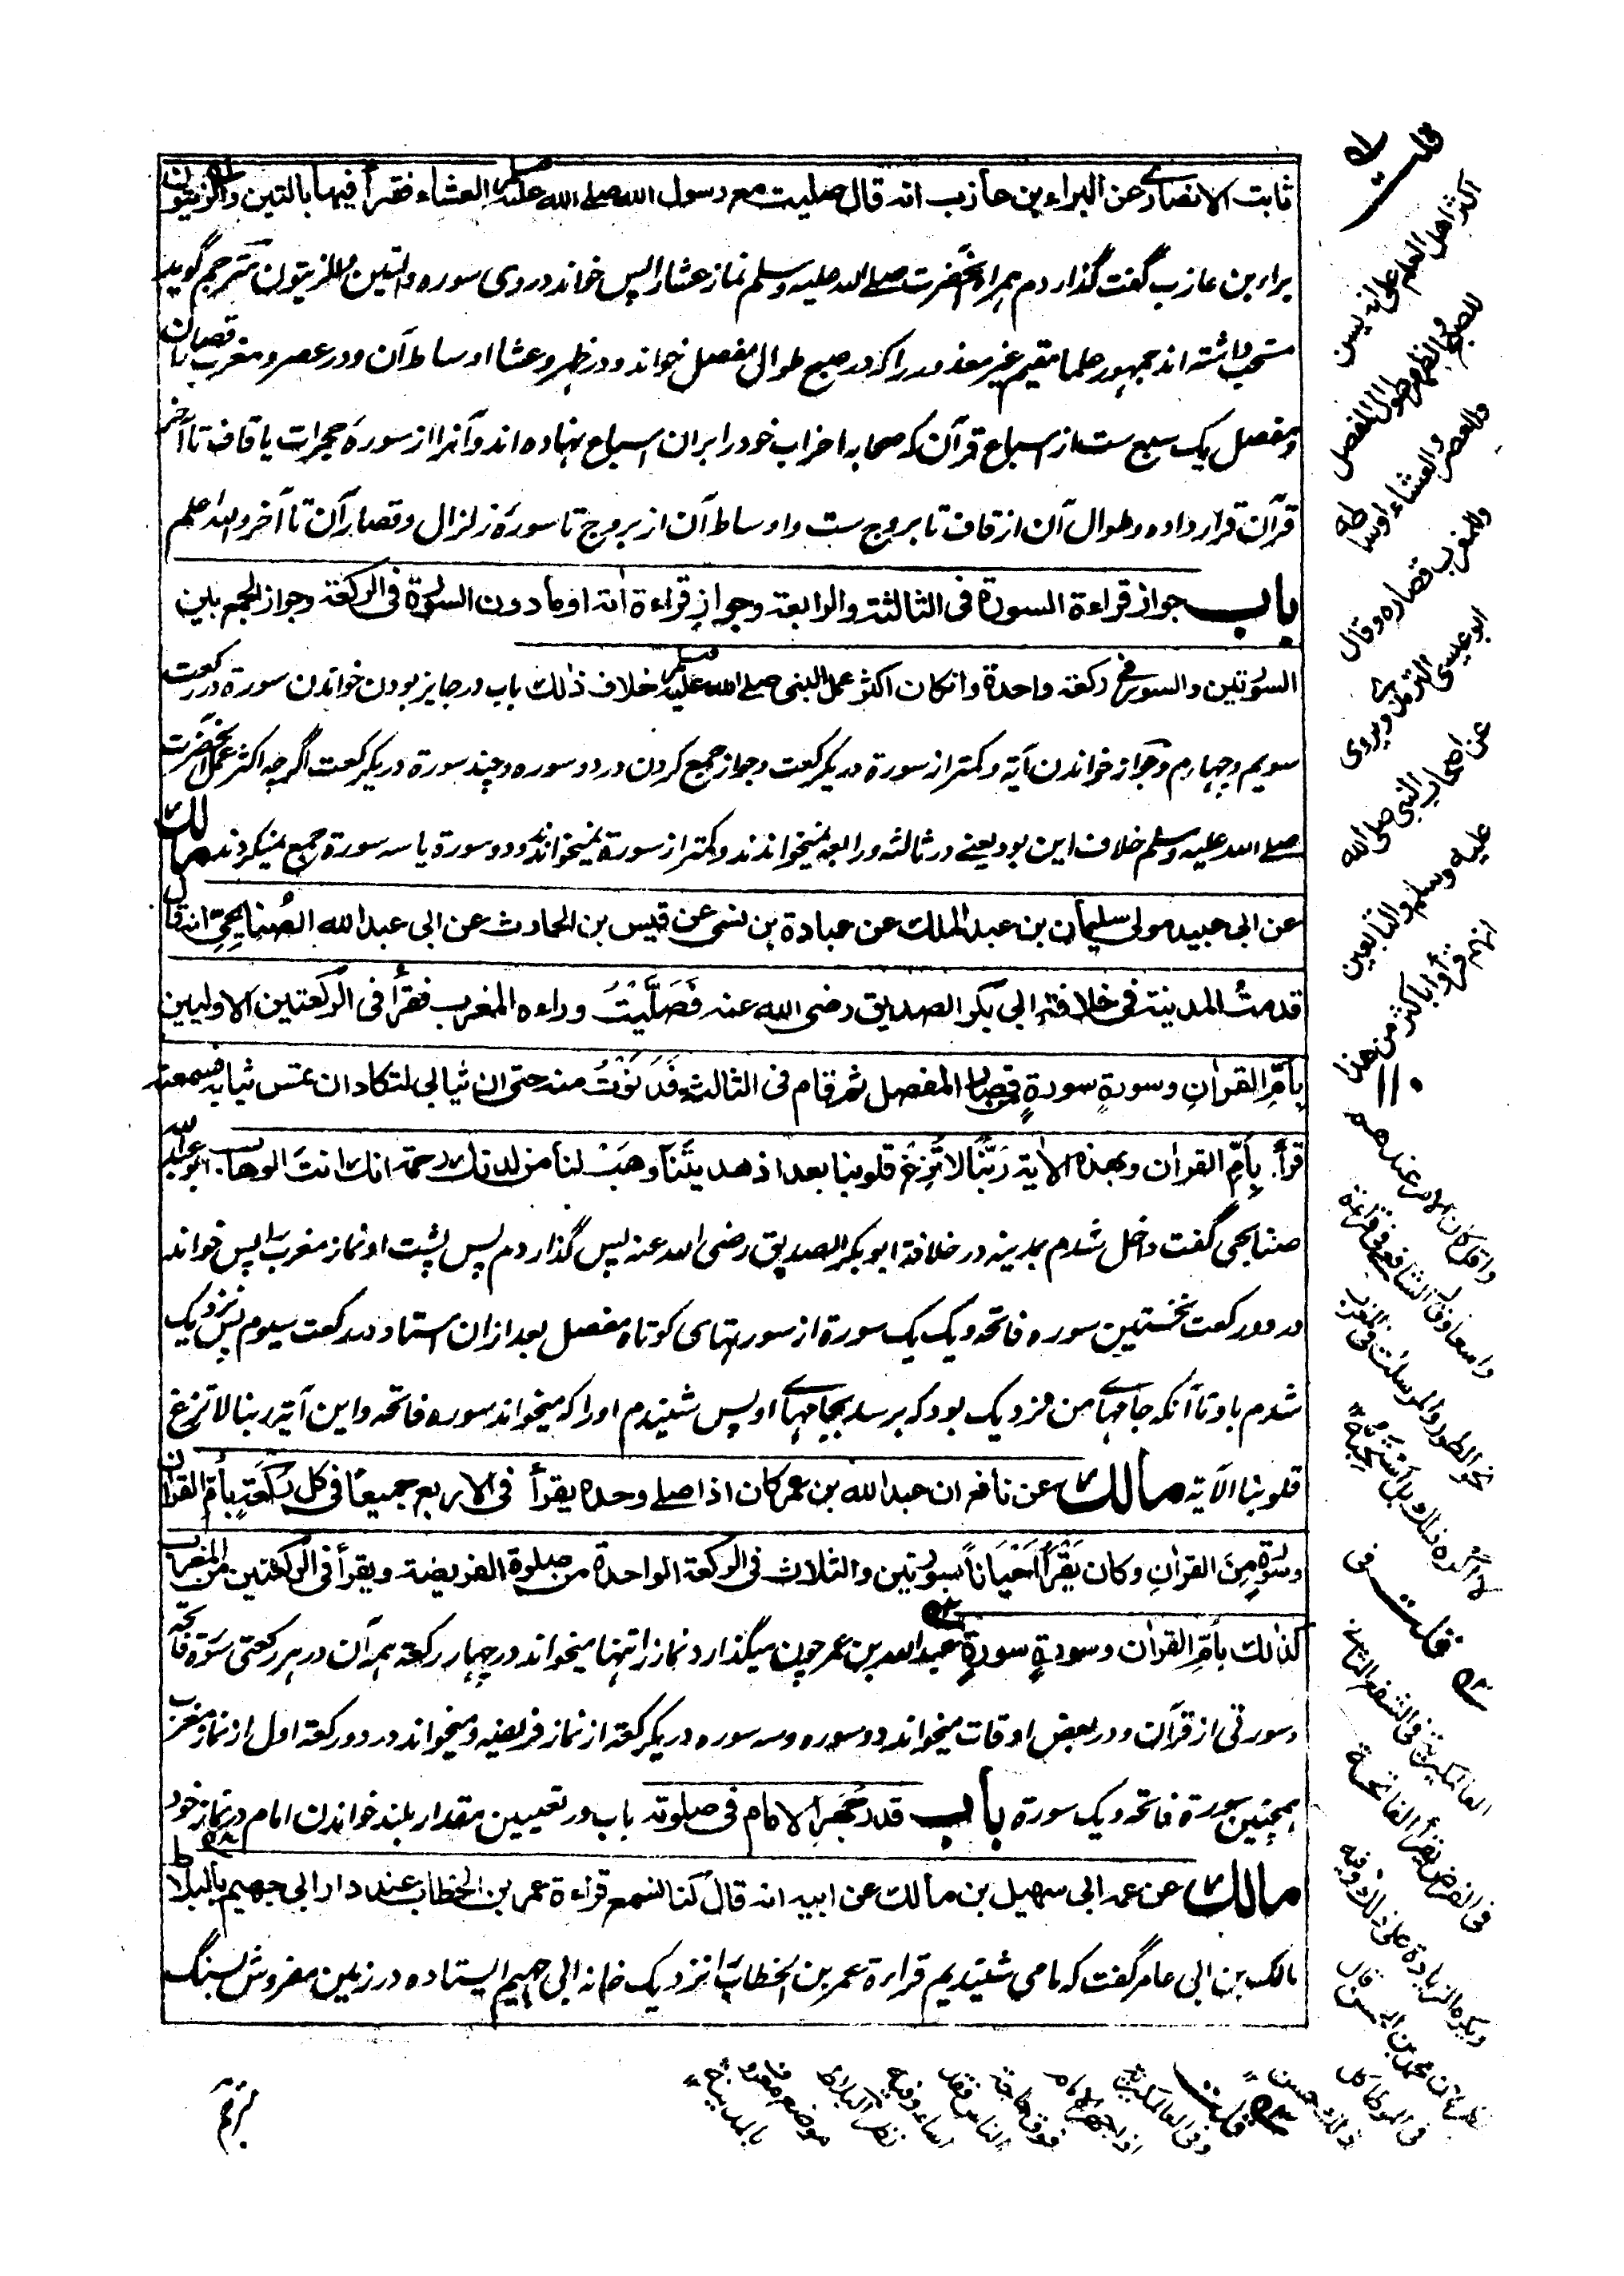 ثابت الانصاری عن البراء بن عازب انه قال صلیت مع رسول الله صلی الله علیه وسلم العشاء فقرأ فیها بالتین والزیتون
براء بن عازب گفت گذاردم همراه آنحضرت صلے الله علیه وسلم نماز عشا را پس خواند دروی سوره والتین والزیتون مترجم گوید
مستحب داشته اند جمهور علما مقیم غیر معذور را که در صبح طوال مفصل خواند و در ظهر و عشا اوساط آن و در عصر و مغرب قصار آن
و مفصل یک سبع ست از اسباع قرآن که صحابه احزاب خود را بران اسباع نهاده اند و آنرا از سورهٔ حجرات یا قاف تا آخر
قرآن قرار داده و طوال آن از قاف تا بروج ست و اوساط آن از بروج تا سورهٔ زلزال و قصار آن تا آخر والله اعلم
باب جواز قراءة السورة فی الثالثة والرابعة وجواز قراءة اٰیة او مادون السورة فی الرکعة وجواز الجمع بین
السورتین والسور فی رکعة واحدة وان کان اکثر عمل النبی صلے الله علیه وسلم خلاف ذٰلک باب در جایز بودن خواندن سورة در رکعت
سویم و چهارم و جواز خواندن آیة و کمتر از سورة در یکرکعت و جواز جمع کردن در دو سوره و چند سورة در یکرکعت اگرچه اکثر عمل آنحضرت
صلے الله علیه وسلم خلاف این بود یعنے در ثالثه و رابعه نمیخواندند و کمتر از سورة نمیخواندند و دو سورة یا سه سورة جمع نمیکردند مالک
عن ابی عبید مولی سلیمان بن عبد الملک عن عبادة بن نسی عن قیس بن الحارث عن ابی عبد الله الصُنابِحیّ انه قال
قدمتُ المدینة فی خلافة ابی بکر الصدیق رضی الله عنه فَصَلَّیْتُ وراءه المغرب فقرأ فی الرکعتین الاولیین
بِاُمِّ القراٰنِ وسورةٍ سورةٍ من قصار المفصل ثم قام فی الثالثة فَدَنَوْتُ منه حتی ان ثیابی لتکاد ان تمس ثیابه فسمعته
قرأ بِاُمِّ القراٰن وبهذه الاٰیة رَبَّنَا لا تُزِغْ قلوبنا بعد اذ هدیتَنَا وهَبْ لنا من لدنک رحمة انک انت الوهاب ابو عبد الله
صنابحی گفت داخل شدم بمدینه در خلافة ابو بکر الصدیق رضی الله عنه پس گذاردم پس پشت او نماز مغرب را پس خواند
در دو رکعت نخستین سوره فاتحه و یک یک سورة از سورتهای کوتاه مفصل بعد ازان استاد در رکعت سیوم پس نزدیک
شدم باو تا آنکه جامهاے من نزدیک بود که برسد بجامهاے او پس شنیدم او را که میخواند سوره فاتحه و این آیة ربنا لا تزغ
قلوبنا الآیة مالک عن نافع ان عبد الله بن عمر کان اذا صلے وحده یقرأ فی الاربع جمیعًا فی کل رکعةٍ بِاُمِّ القراٰن
وسورةٍ مِنَ القراٰنِ وکان یَقْرَأُ اَحْیَانًا بسورتین والثلاث فی الرکعة الواحدة من صلوة الفریضة ویقرأ فی الرکعتین من المغرب
کذٰلک بِاُمِّ القراٰن وسورةٍ سورةٍ عبد الله بن عمر چون میگذارد نماز را تنها میخواند در چهار رکعة همه آن در هر رکعتی سورة فاتحه
و سورتی از قرآن و در بعض اوقات میخواند دو سوره و سه سوره در یکرکعة از نماز فریضه و میخواند در دو رکعة اول از نماز مغرب
همچنین سورة فاتحه و یک سورة باب قدر جهر الامام فی صلوته باب در تعیین مقدار بلند خواندن امام در نماز خود
مالک عن عمه ابی سهیل بن مالک عن ابیه انه قال کنا نسمع قراءة عمر بن الخطاب عند دار ابی جهیم بالبلاط
مالک بن ابی عامر گفت که ما می شنیدیم قراءة عمر بن الخطاب را نزدیک خانه ابی جهیم ایستاده در زمین مفروش بسنگ
قلت
اکثر اهل العلم علی انه یسن
للصبح والظهر طوال المفصل
والعصر والعشاء اوساطه
وللمغرب قصاره وقال
ابو عیسی الترمذی ویروی
عن اصحاب النبی صلی الله
علیه وسلم والتابعین
انهم قرأوا باکثر من هذا
قلت فی
العالمگیریة فی الشفع الثانی
فی الفرض یقرأ الفاتحة